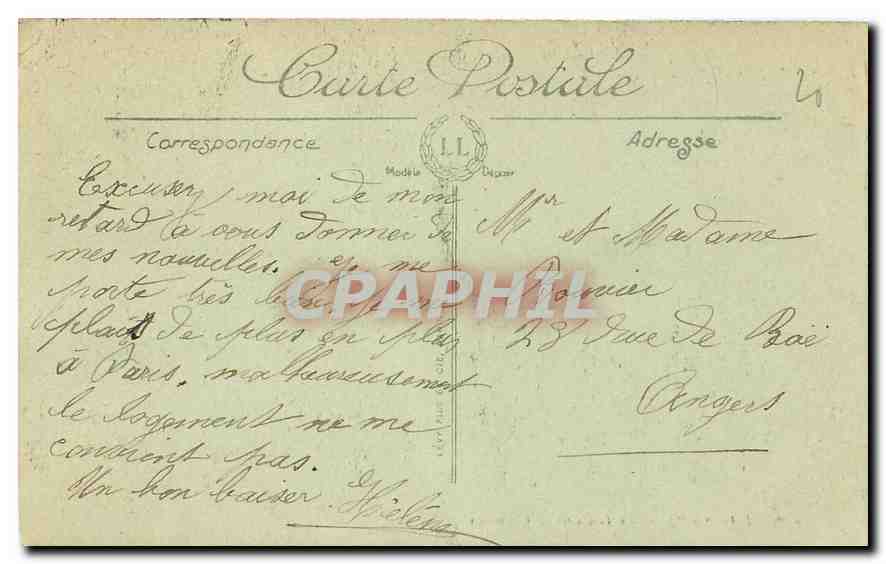 Carte Postale
20
Correspondance
LL
Modèle Déposé
Adresse
Excusez moi de mon
retard à vous donner de
mes nouvelles. Je me
porte très bien, je me
plais de plus en plus
à Paris, malheureusement
le logement ne me
convient pas.
Un bon baiser Hélène
Mr et Madame
Bouvier
28 rue de
Angers
CPAPHIL